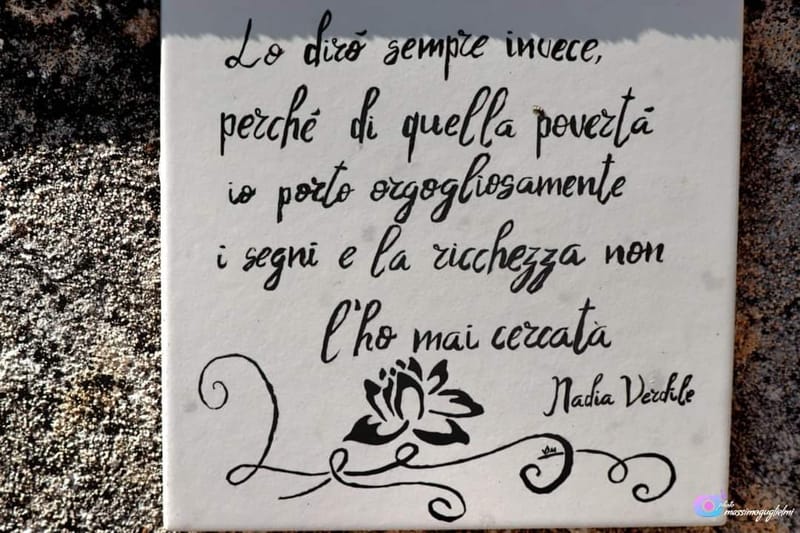 Lo dirò sempre invece,
perché di quella povertà
io porto orgogliosamente
i segni e la ricchezza non
l'ho mai cercata
Nadia Verdile
photo
massimoguglielmi